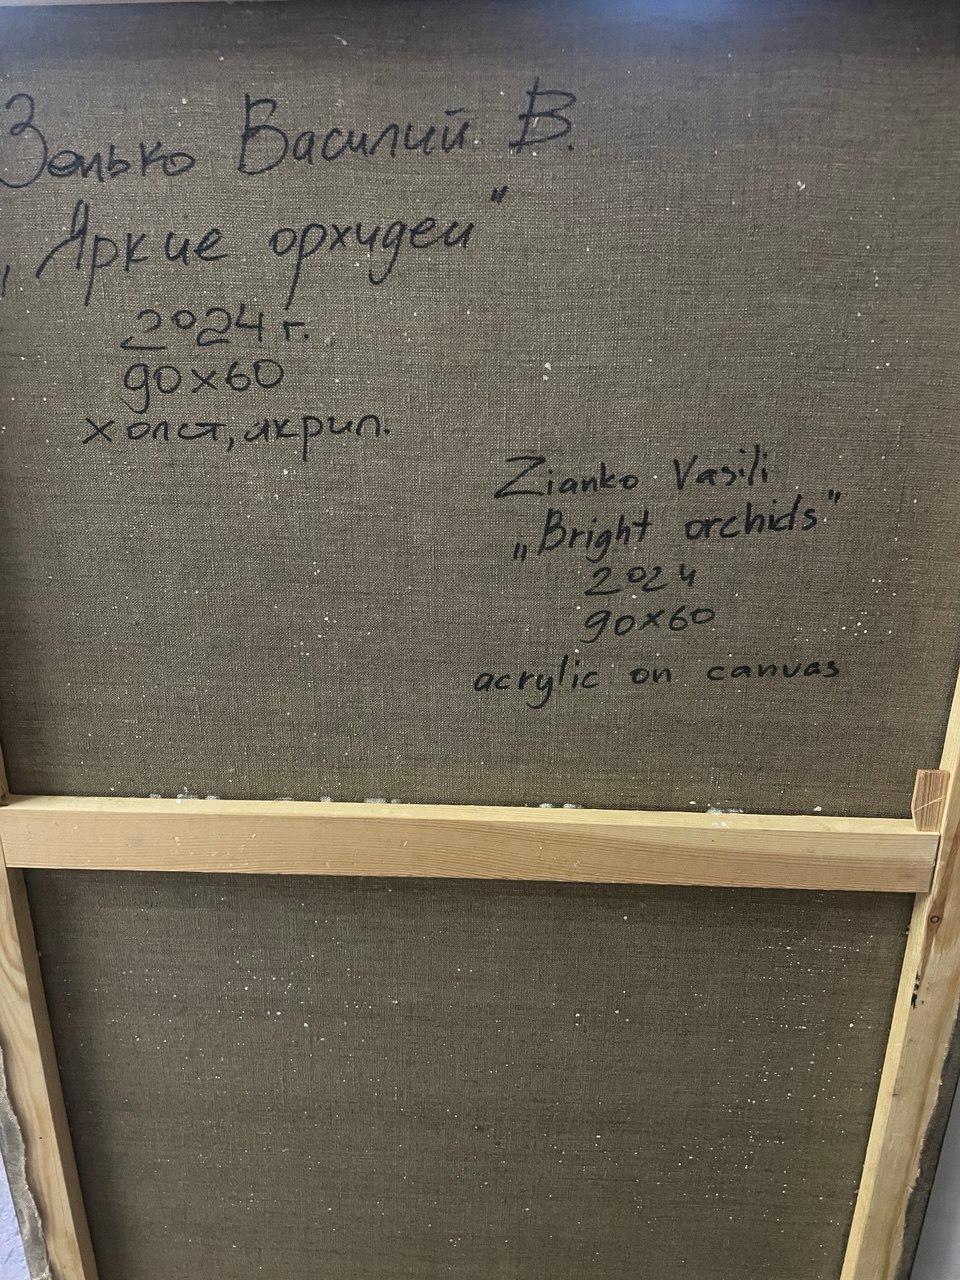 Зенько Василий В.
„Яркие орхидеи"
2024 г.
90x60
холст, акрил.
Zianko Vasili
„Bright orchids"
2024
90x60
acrylic on canvas